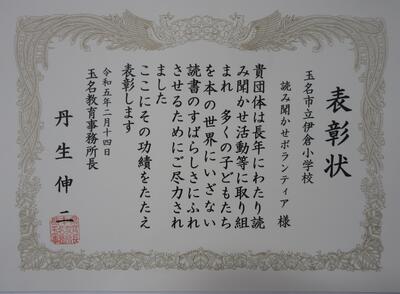 表彰状
玉名市立伊倉小学校
読み聞かせボランティア 様
貴団体は長年にわたり読
み聞かせ活動等に取り組
まれ 多くの子どもたち
を本の世界にいざない
読書のすばらしさにふれ
させるためにご尽力され
ました
ここにその功績をたたえ
表彰します
令和五年二月十四日
玉名教育事務所長
丹生伸二